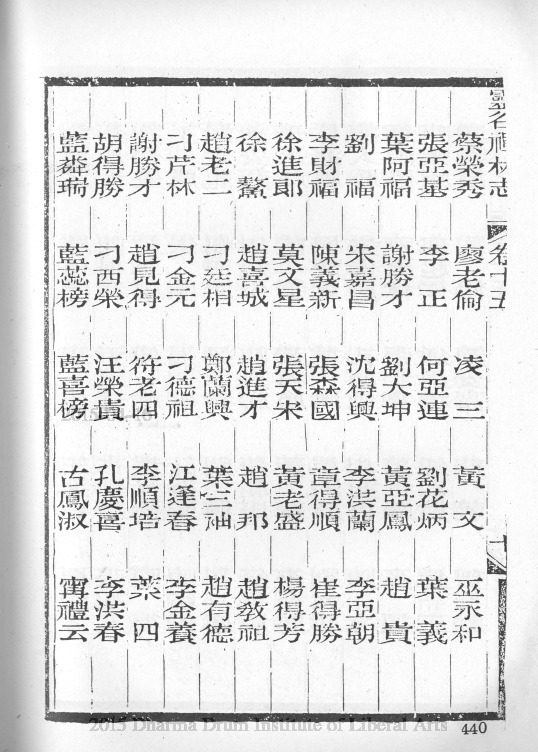 靈谷禪林志 卷十五 十
蔡榮秀 廖老倫 凌三 黃文 巫永和
張亞基 李正 何亞連 劉花炳 葉義
葉阿福 謝勝才 劉大坤 黃亞鳳 趙貴
劉福 宋嘉昌 沈得興 李洪蘭 李亞朝
李財福 陳義新 張森國 章得順 崔得勝
徐進郎 莫文星 張天宋 黃老盛 楊得芳
徐鰲 趙喜城 趙進才 趙邦 趙教祖
趙老二 刁廷相 鄭蘭興 葉三袖 趙有德
刁芹林 刁金元 刁德祖 江逢春 李金養
謝勝才 趙見得 符老四 李順培 葉四
胡得勝 刁西榮 汪榮貴 孔慶喜 李洪春
藍瑞 藍蕊榜 藍喜榜 古鳳淑 甯禮云
2015 Dharma Drum Institute of Liberal Arts
440